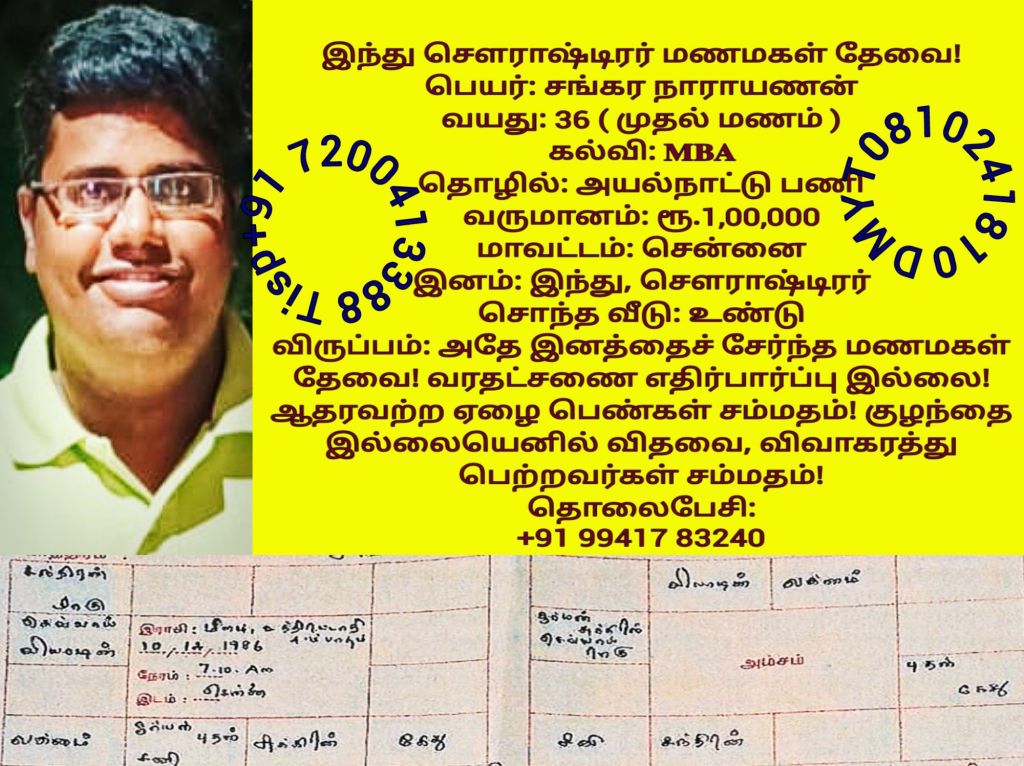 இந்து சௌராஷ்டிரர் மணமகள் தேவை!
பெயர்: சங்கர நாராயணன்
வயது: 36 ( முதல் மணம் )
கல்வி: MBA
தொழில்: அயல்நாட்டு பணி
வருமானம்: ரூ.1,00,000
மாவட்டம்: சென்னை
இனம்: இந்து, சௌராஷ்டிரர்
சொந்த வீடு: உண்டு
விருப்பம்: அதே இனத்தைச் சேர்ந்த மணமகள்
தேவை! வரதட்சணை எதிர்பார்ப்பு இல்லை!
ஆதரவற்ற ஏழை பெண்கள் சம்மதம்! குழந்தை
இல்லையெனில் விதவை, விவாகரத்து
பெற்றவர்கள் சம்மதம்!
தொலைபேசி:
+91 99417 83240
Tisp+91 7200413388
DMYT0810241810
சந்திரன்
ராகு
செவ்வாய்
வியாழன்
இராசி : மீனம்,
10 / 12 / 1986
நேரம் : 7.10. Am
இடம் : சென்னை
லக்னம்
சூரியன்
புதன்
சனி
சுக்கிரன்
கேது
வியாழன்
லக்னம்
சுக்கிரன்
செவ்வாய்
ராகு
அம்சம்
புதன்
கேது
சனி
சந்திரன்